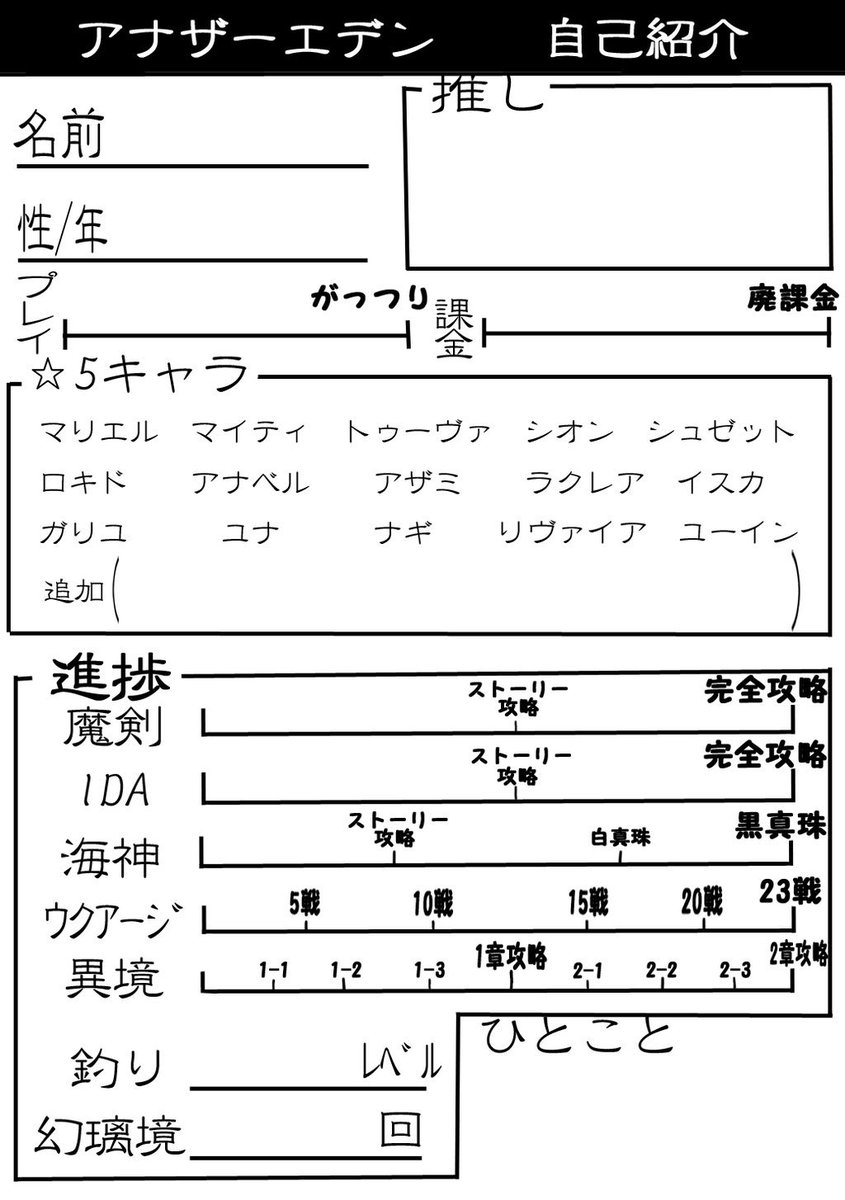 アナザーエデン 自己紹介
推し
名前
性/年
プレイ がっつり 課金 廃課金
☆5キャラ
マリエル マイティ トゥーヴァ シオン シュゼット
ロキド アナベル アザミ ラクレア イスカ
ガリユ ユナ ナギ りヴァイア ユーイン
追加( )
進捗
魔剣 ストーリー攻略 完全攻略
IDA ストーリー攻略 完全攻略
海神 ストーリー攻略 白真珠 黒真珠
ウクアージ 5戦 10戦 15戦 20戦 23戦
異境 1-1 1-2 1-3 1章攻略 2-1 2-2 2-3 2章攻略
ひとこと
釣り レベル
幻璃境 回